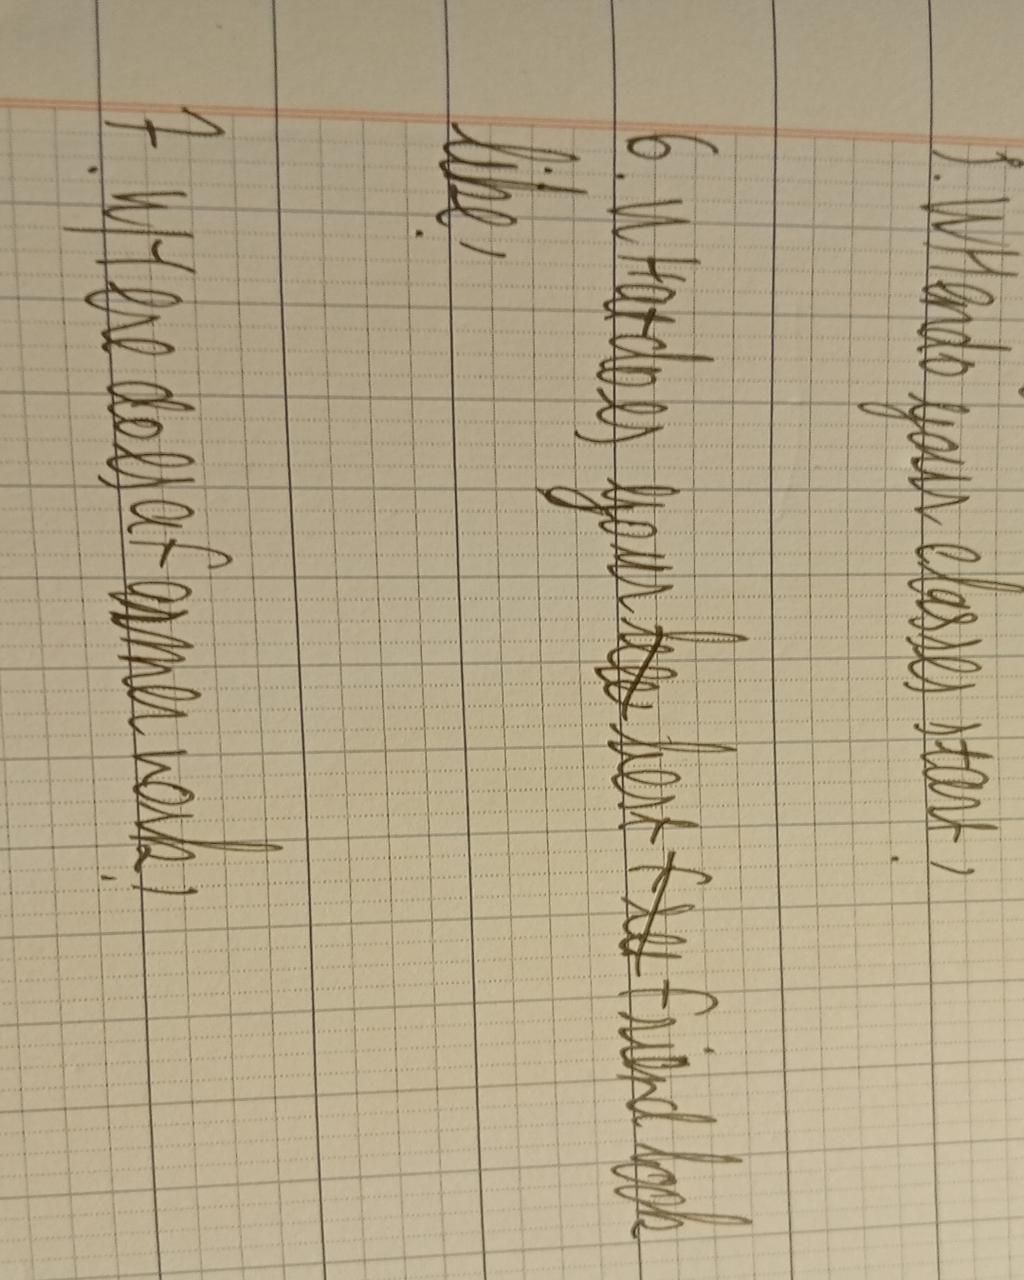 5. When do your classes start?
6. What does your best friend look
like?
7. Where does a fireman work?